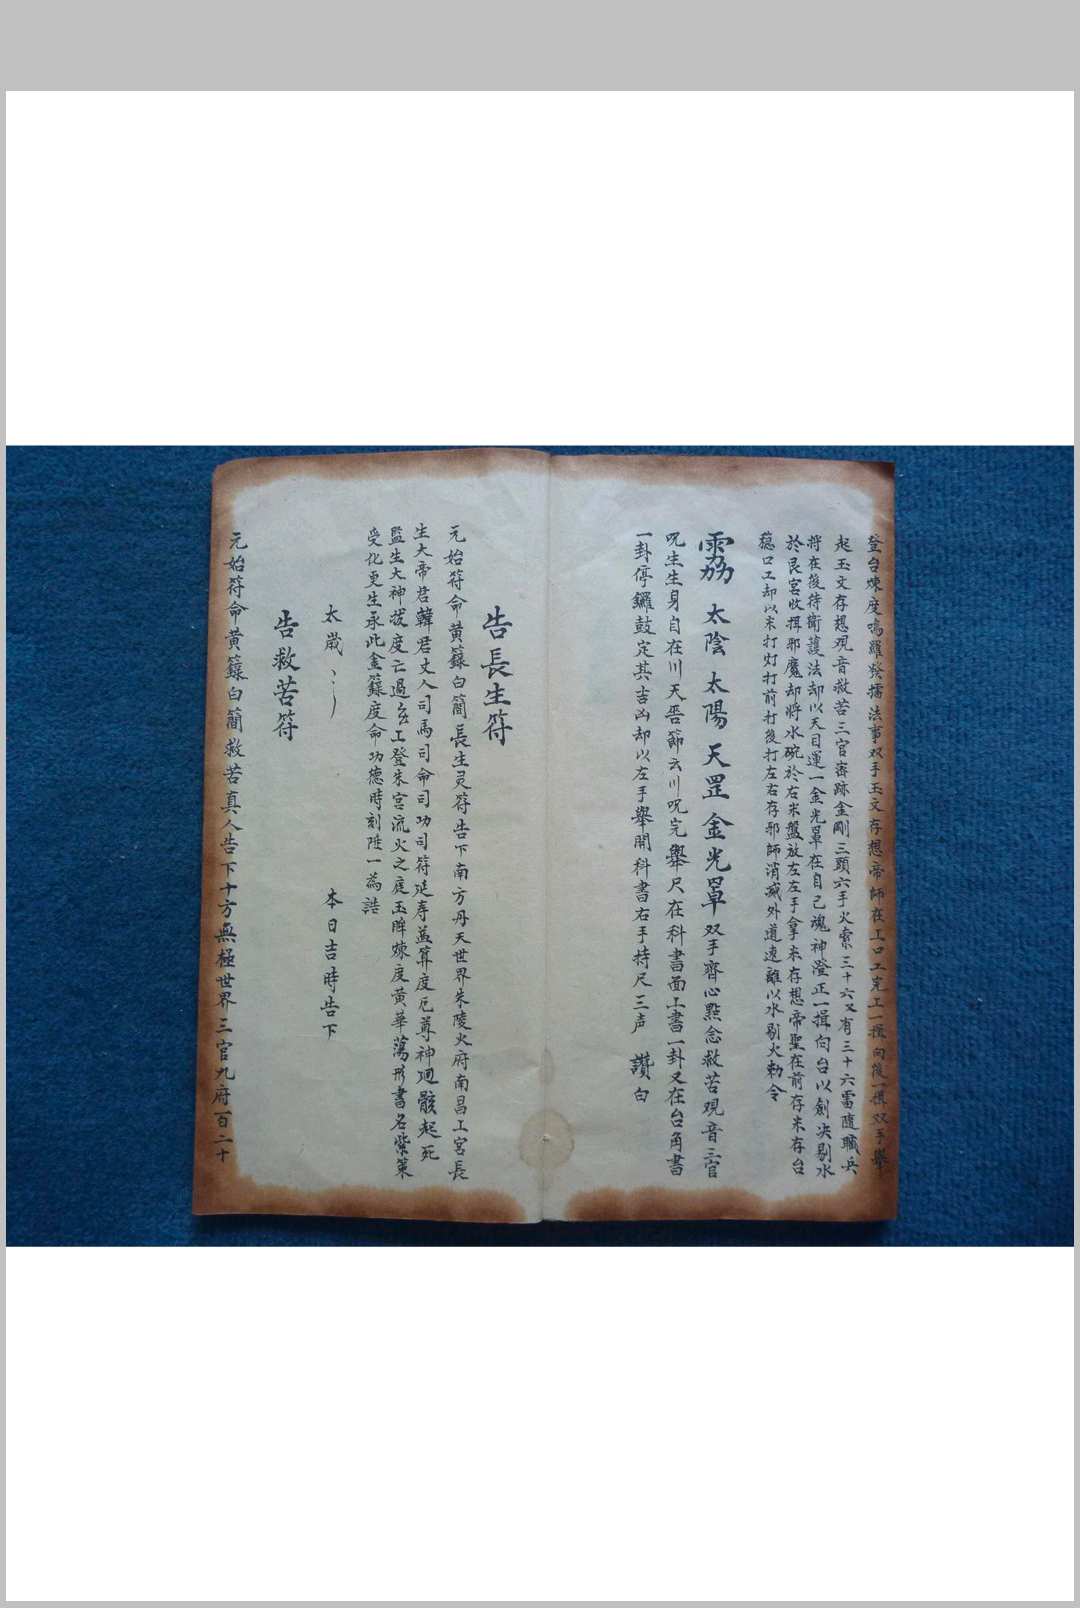 登台煉度鳴羅發擂法事双手玉文存想帝師在工口工完工一揖向後一揖双手舉
起玉文存想观音救苦三官審跡金剛三頭六手火索三十六又有三十六雷随職兵
将在後待衛護法却以天目運一金光罩在自己魂神澄正一揖向台以劍决剔水
於艮宮收揖邪魔却将水碗於右米盤放左左手拿米存想帝聖在前存米存台
口工却以米打灯打前打後打左右存邪師消滅外道遠離以水剔火勅令
太陰太陽天罡金光罩双手齊心點念救苦观音三官
咒生生身自在川天節云川咒完舉尺在科書面工書一卦又在台角書
一卦停鑼鼓定其吉凶却以左手舉開科書右手持尺三声 讚白
告長生符
元始符命黄籙白簡長生灵符告下南方丹天世界朱陵火府南昌工宫長
生大帝君韓君丈人司馬司命司功司符延寿益算度厄尊神廻骸起死
監生大神拔度亡過玄工登朱宫流火之庭玉眸煉度黄華蕩形書名紫策
受化更生承此金籙度命功德時刻陞一為誥
太歲 本日吉時告下
告救苦符
元始符命黄籙白簡救苦真人告下十方無極世界三官九府百二十